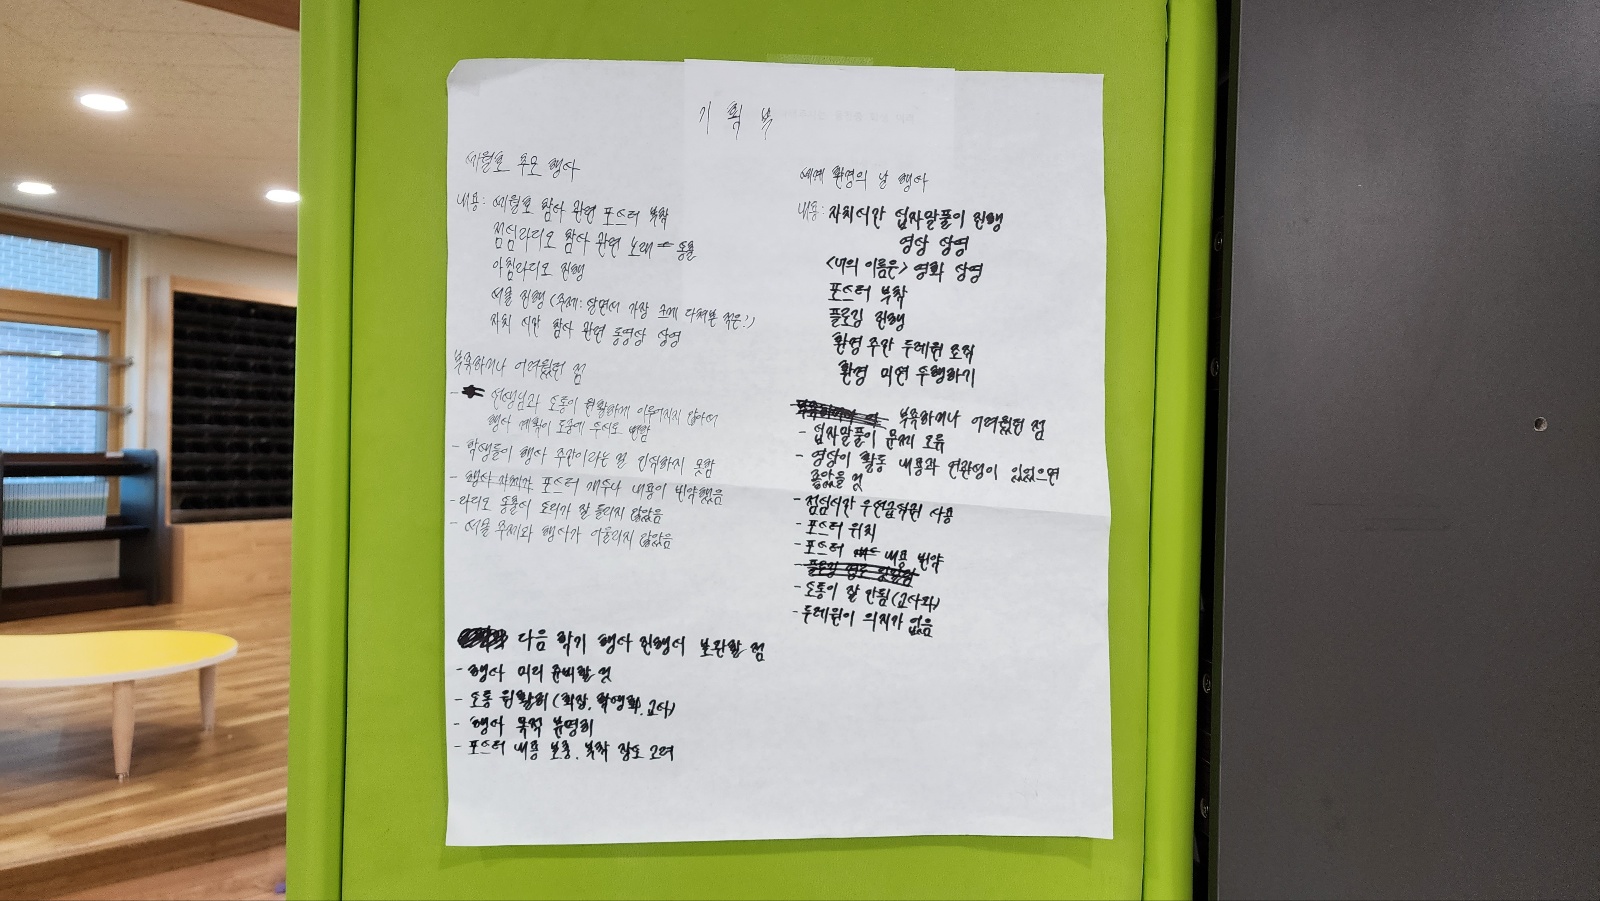 기획부
세월호 추모 행사
내용: 세월호 참사 관련 포스터 부착
점심라디오 참사 관련 노래 송출
아침라디오 진행
서울 진행 (주제: 살면서 가장 크게 다쳐본 적은?)
자치 시간 참사 관련 동영상 상영
부족하거나 어려웠던 점
- 선생님과 소통이 원활하게 이루어지지 않아서
행사 계획이 도중에 수시로 변함
- 학생들이 행사 주간이라는 걸 인식하지 못함
- 행사 자체가 포스터 개수나 내용이 빈약했음
- 라디오 송출시 소리가 잘 들리지 않았음
- 서울 주제와 행사가 어울리지 않았음
다음 학기 행사 진행시 보완할 점
- 행사 미리 준비할 것
- 소통 원활히 (회장, 학생회, 교사)
- 행사 목적 분명히
- 포스터 내용 보충, 부착 장소 고려
세계 환경의 날 행사
내용: 자치시간 십자말풀이 진행
영상 상영
<나의 이름은> 영화 상영
포스터 부착
플로깅 진행
환경 주간 두레원 조직
환경 미션 수행하기
부족하거나 어려웠던 점
- 십자말풀이 문제 오류
- 영상이 활동 내용과 연관성이 있었으면
좋았을 것
- 점심시간 우선급식권 사용
- 포스터 위치
- 포스터 내용 빈약
- 소통이 잘 안됨 (교사와)
- 두레원이 의지가 없음